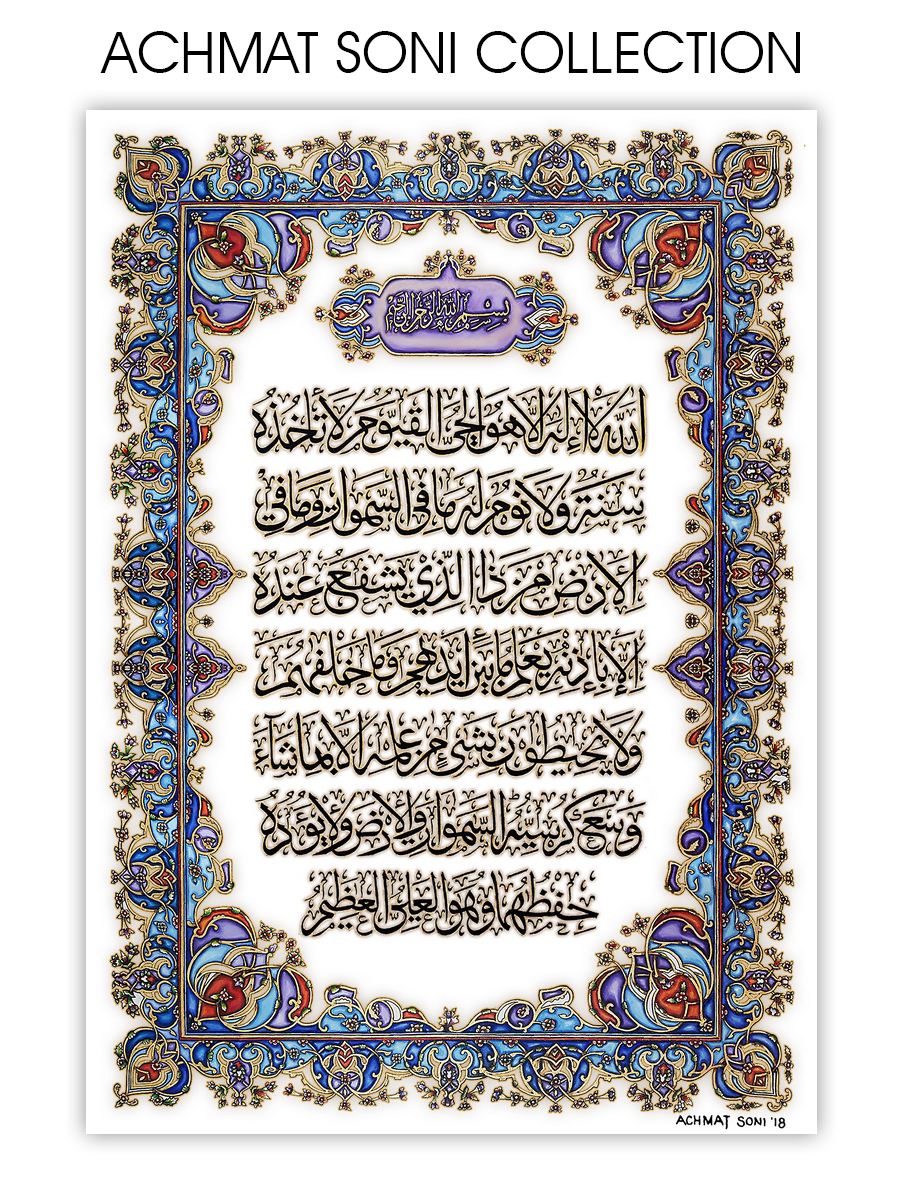 ACHMAT SONI COLLECTION
بسم الله الرحمن الرحيم
الله لا إله إلا هو الحي القيوم لا تأخذه
سنة ولا نوم له ما في السموات وما في
الأرض من ذا الذي يشفع عنده
إلا بإذنه يعلم ما بين أيديهم وما خلفهم
ولا يحيطون بشئ من علمه إلا بما شاء
وسع كرسيه السموات والأرض ولا يؤده
حفظهما وهو العلي العظيم
ACHMAT SONI '18